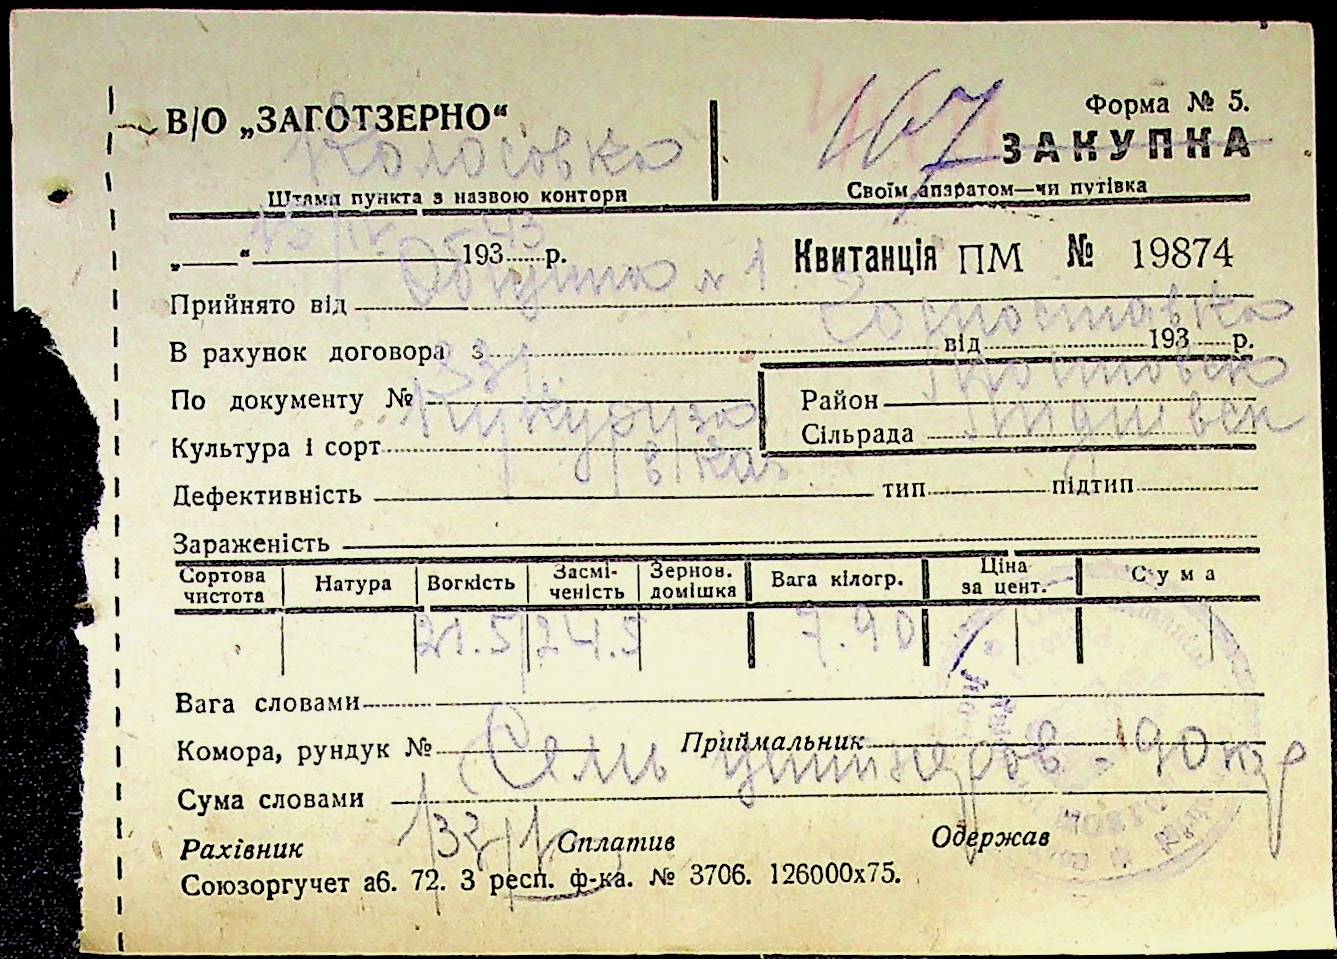 В/О „ЗАГОТЗЕРНО“
Колосовка
Штамп пункта з назвою контори
467
Форма № 5.
ЗАКУПКА
Своїм апаратом—чи путівка
13/IV 43
„ “ 193 р.
Квитанція ПМ № 19874
Прийнято від Община № 1
В рахунок договора з від 193 р.
По документу № 331
Район
Сільрада
Культура і сорт Кукуруза
в/кач
Дефективність тип підтип
Зараженість
Сортова чистота Натура Вогкість Засмі-ченість Зернов. домішка Вага кілогр. Ціна за цент. Сума
21.5 24.5 7.90
Вага словами
Комора, рундук № Приймальник
Семь центнеров - 90 кгр
Сума словами
Рахівник Сплатив Одержав
Союзоргучет аб. 72. 3 респ. ф-ка. № 3706. 126000х75.